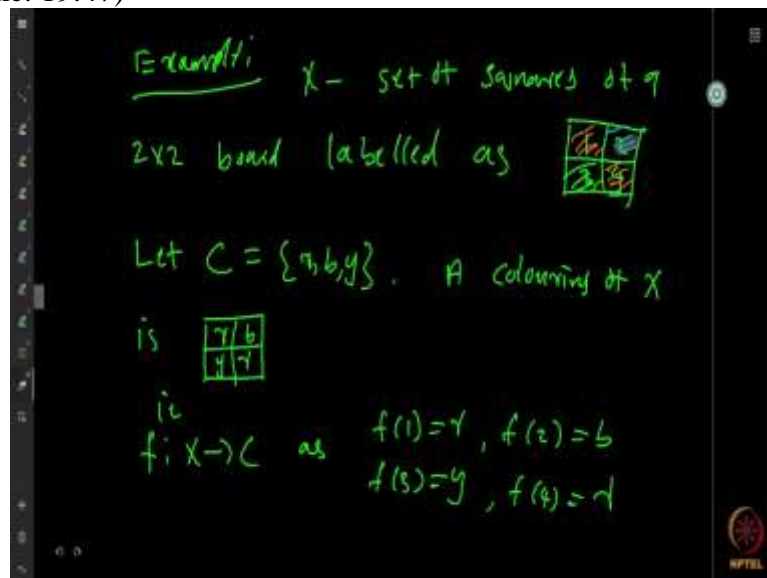 Example: X - set of squares of a
2x2 board labelled as
Let C = {r, b, y}. A colouring of X
is r b
y r
ie
f: X -> C as f(1) = r, f(2) = b
f(3) = y, f(4) = r
NPTEL